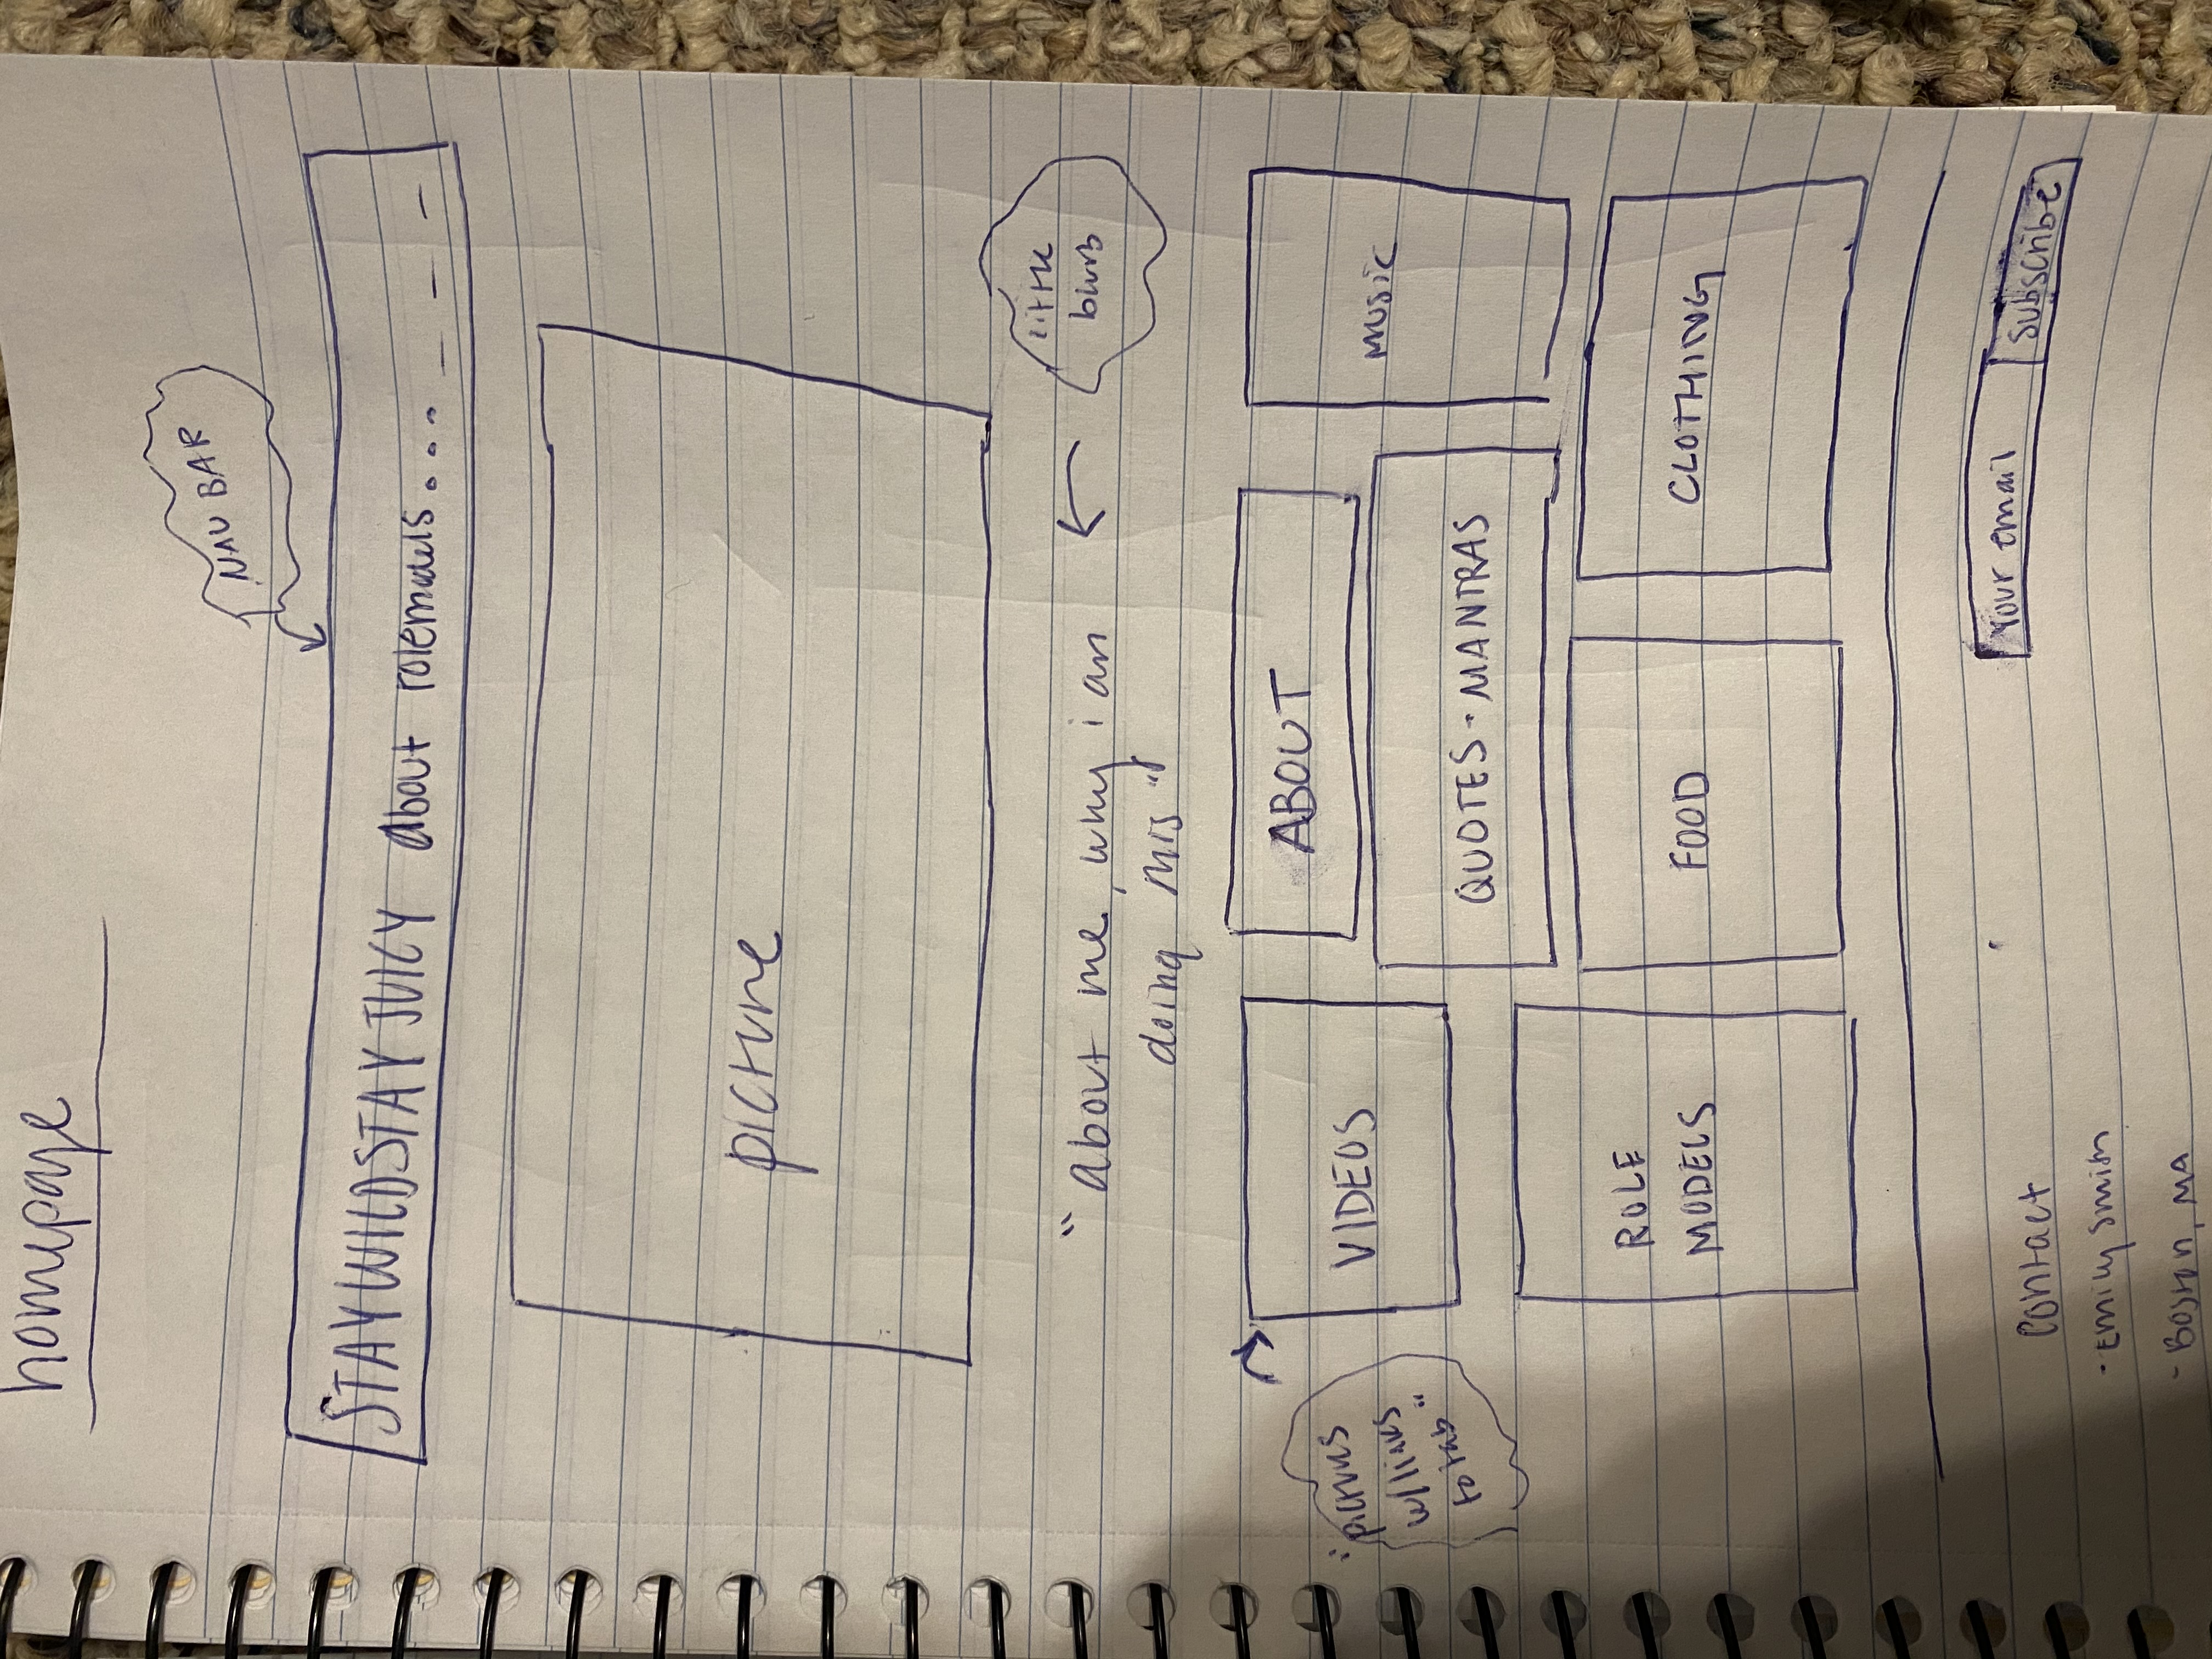 homepage
NAV BAR
STAYWILDSTAYJUICY about rolemodels... _ _ _
picture
"about me, why i am
doing this"
little
blurb
"pictures
w/links
to tab"
VIDEOS
ABOUT
MUSIC
QUOTES - MANTRAS
ROLE
MODELS
FOOD
CLOTHING
Your email
Subscribe
Contact
- Emily Smith
- Boston, MA